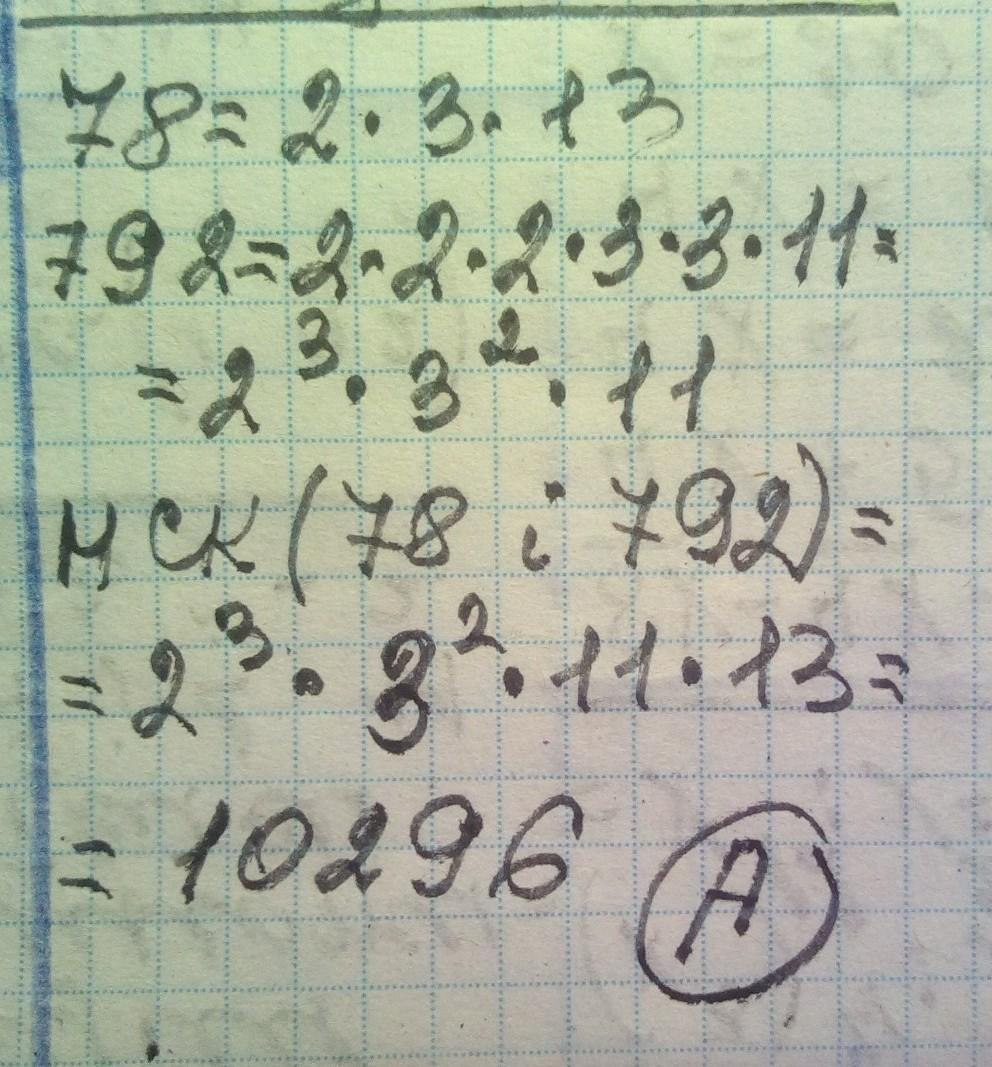 78 = 2 · 3 · 13
792 = 2 · 2 · 2 · 3 · 3 · 11 =
= 2³ · 3² · 11
НСК (78 і 792) =
= 2³ · 3² · 11 · 13 =
= 10296 А